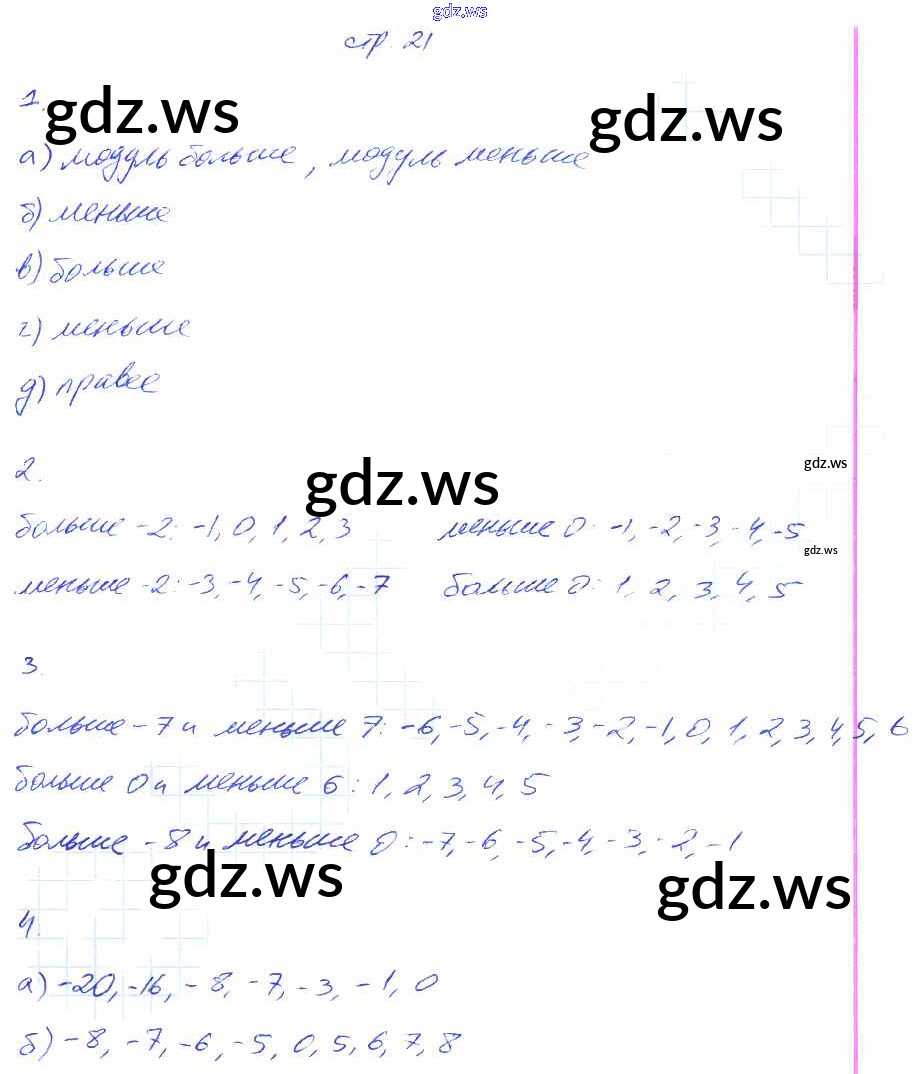 gdz.ws
стр. 21
1.
gdz.ws
gdz.ws
а) модуль больше, модуль меньше
б) меньше
в) больше
г) меньше
д) правее
2.
gdz.ws
gdz.ws
больше -2: -1, 0, 1, 2, 3 меньше 0: -1, -2, -3, -4, -5
gdz.ws
меньше -2: -3, -4, -5, -6, -7 больше 0: 1, 2, 3, 4, 5
3.
больше -7 и меньше 7: -6, -5, -4, -3, -2, -1, 0, 1, 2, 3, 4, 5, 6
больше 0 и меньше 6: 1, 2, 3, 4, 5
больше -8 и меньше 0: -7, -6, -5, -4, -3, -2, -1
gdz.ws
gdz.ws
4.
а) -20, -16, -8, -7, -3, -1, 0
б) -8, -7, -6, -5, 0, 5, 6, 7, 8